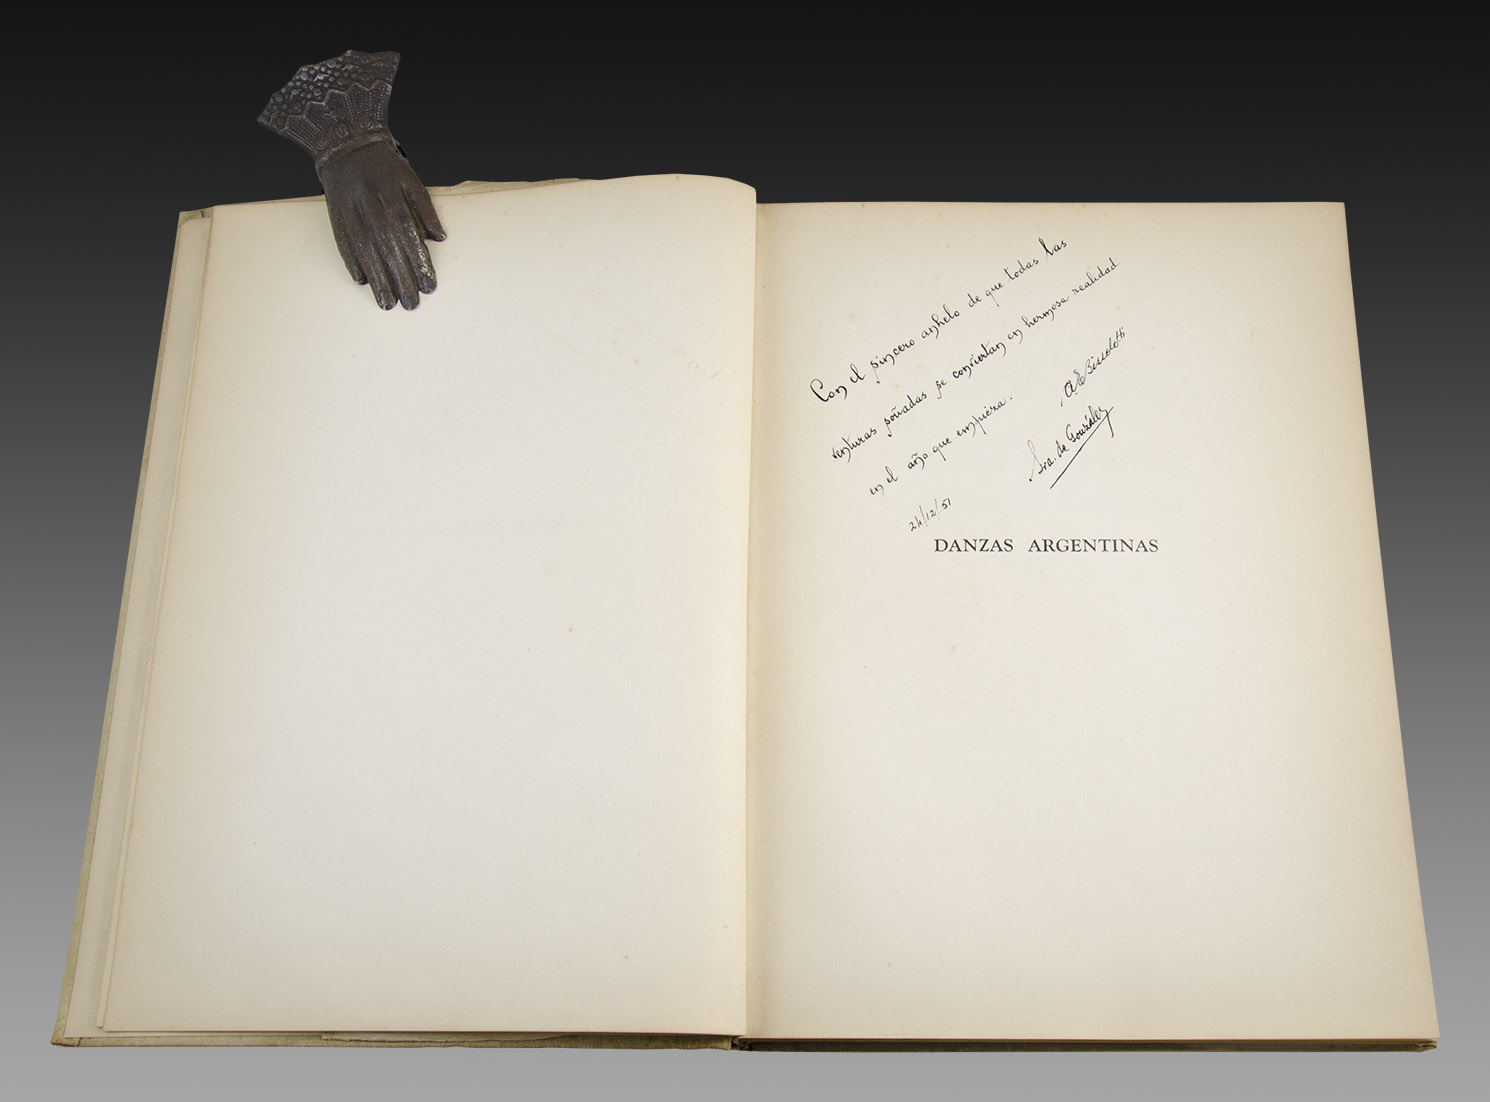 Con el sincero anhelo de que todas las
venturas soñadas se conviertan en hermosa realidad
en el año que empieza.
Sra. de González
24/12/51
DANZAS ARGENTINAS